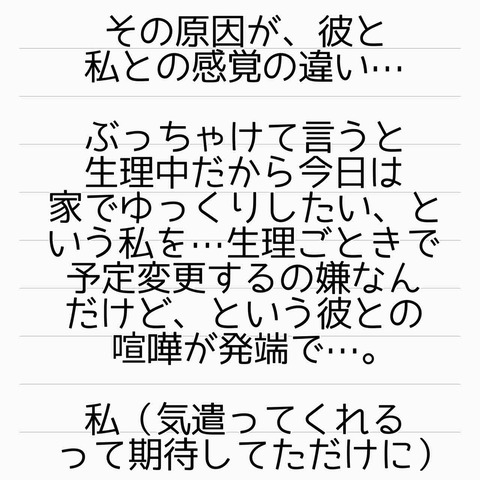 その原因が、彼と
私との感覚の違い…
ぶっちゃけて言うと
生理中だから今日は
家でゆっくりしたい、と
いう私を…生理ごときで
予定変更するの嫌なん
だけど、という彼との
喧嘩が発端で…。
私（気遣ってくれる
って期待してただけに）